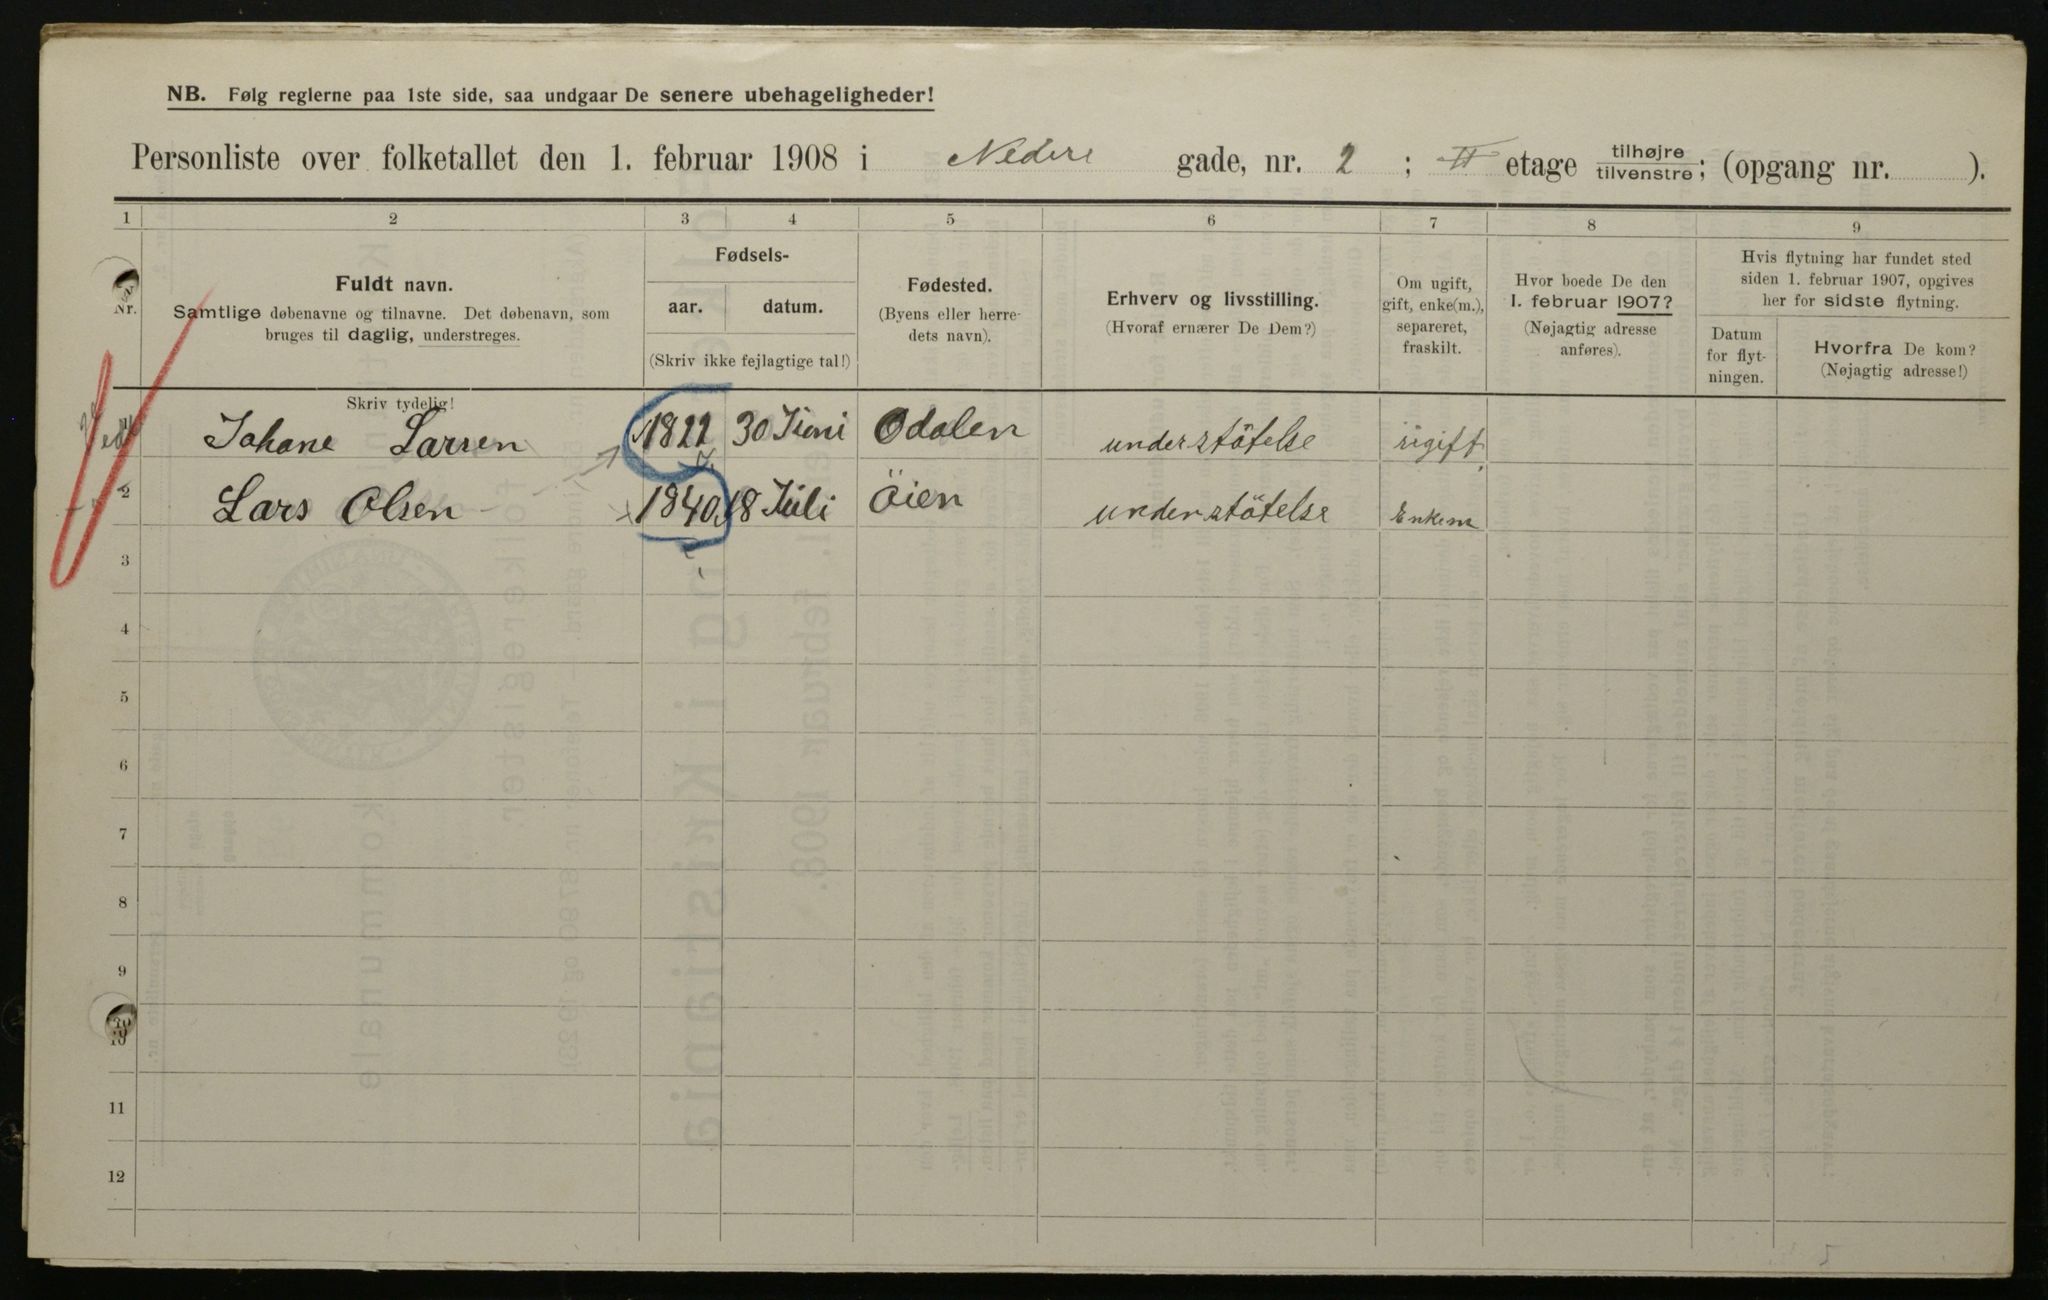 NB. Følg reglerne paa 1ste side, saa undgaar De senere ubehageligheder!
Personliste over folketallet den 1. februar 1908 i Nedre gade, nr. 2 ; II etage tilhøjre tilvenstre; (opgang nr. ).
1 2 3 4 5 6 7 8 9
Nr.
Fuldt navn.
Samtlige døbenavne og tilnavne. Det døbenavn, som
bruges til daglig, understreges.
Skriv tydelig!
Fødsels-
aar. datum.
(Skriv ikke fejlagtige tal!)
Fødested.
(Byens eller herre-
dets navn).
Erhverv og livsstilling.
(Hvoraf ernærer De Dem?)
Om ugift,
gift, enke(m.),
separeret,
fraskilt.
Hvor boede De den
1. februar 1907?
(Nøjagtig adresse
anføres).
Hvis flytning har fundet sted
siden 1. februar 1907, opgives
her for sidste flytning.
Datum
for flyt-
ningen.
Hvorfra De kom?
(Nøjagtig adresse!)
Johane Larsen 1822 30 Juni Odalen understötelse ugift
2 Lars Olsen 1840 18 Juli Öien understötelse Enkem
3
4
5
6
7
8
9
10
11
12